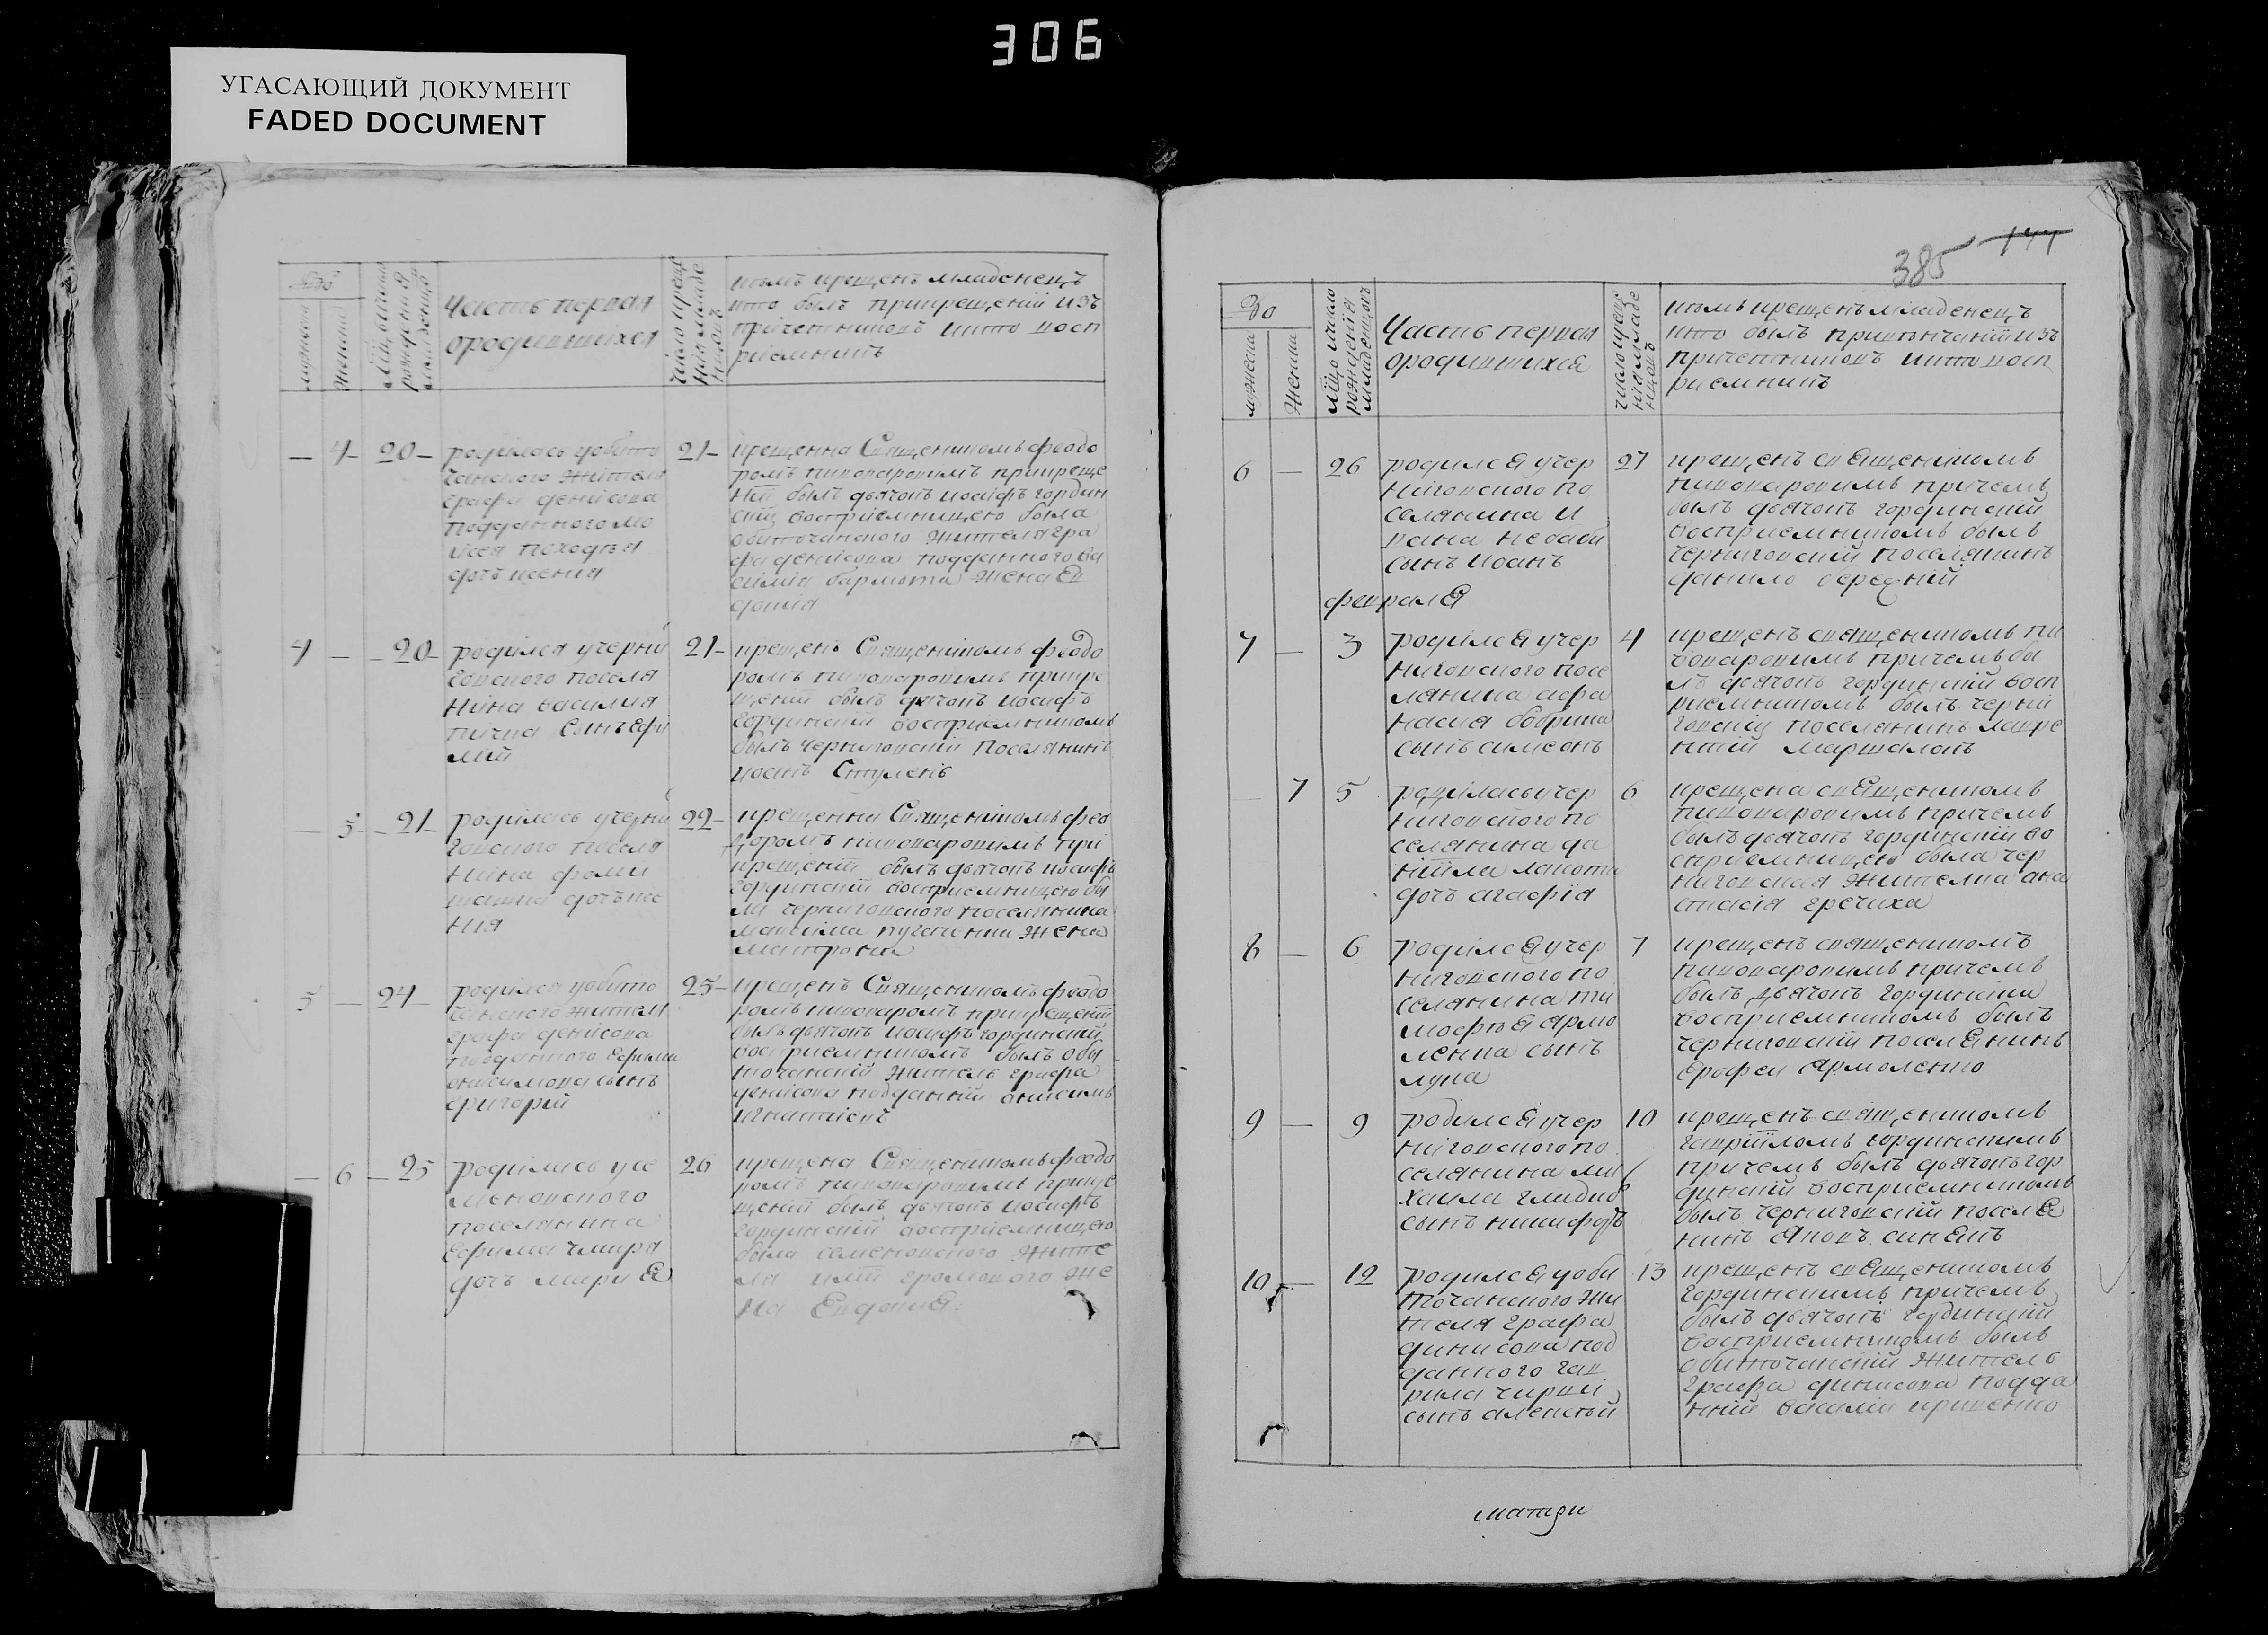 306
УГАСАЮЩИЙ ДОКУМЕНТ
FADED DOCUMENT
мужеска
женска
Часть первая
ородившихся
кемъ крещенъ младенецъ
кто былъ прикрещенїи изъ
причетниковъ икто восп
рїемникъ
— 4 20
родилась уобито
чанского жителя
графа денисова
подданного мо
дочь ксенїя
21
крещенна Священикомъ феодо
ромъ никонаровимъ прикреще
нїи былъ дьячокъ иосифъ гордин
скїй восприемницею была
обиточанского жителя гра
фа денисова подданного ва
жена Ев
докия
4 — 20
родился учерни
говского поселя
нина василия
21
крещенъ Священикомъ феодо
ромъ никонаровимъ прикре
щенїи былъ дьячокъ иосифъ
гординскїй восприемникомъ
былъ черниговскїй поселянинъ
иоанъ Ступенъ
— 5 21
родилась учерни
говского поселя
нина
22
крещенна Священикомъ фео
доромъ никонаровимъ при
крещенїи былъ дьячокъ иосифъ
гординскїй восприемницею бы
ла черниговского поселянина
жена
матрона
5 — 24
родился уобито
чанского жителя
графа денисова
подданного Ефима
онисимова сынъ
григорїй
25
крещенъ Священикомъ феодо
ромъ никонаромъ прикрещенїи
былъ дьячокъ иосифъ гординскїй
восприемникомъ былъ оби
точанскїй житель графа
денисова подданнїй онисимъ
игнатїевъ
— 6 25
родилась усе
меновского
поселянина
Ефима чмиря
дочь мария
26
крещена Священикомъ феодо
ромъ никонаровимъ прикре
щенїи былъ дьячокъ иосифъ
гординскїй восприемницею
была семеновского жите
ля
на Евдокия
385
144
Во
мужеска
женска
мцъ ичисло
рожденїя
младенцовъ
Часть первая
ородившихся
число креще
нїя младе
нцовъ
кемъ крещенъ младенецъ
кто былъ
причетниковъ икто восп
риемникъ
6 — 26
родился учер
ниговского по
селянина и
сынъ иоанъ
27
крещенъ священикомъ
никонаровимъ причемъ
былъ дьячокъ гординскїй
восприемникомъ былъ
черниговскїй поселянинъ
данило середнїй
февраля
7 — 3
родился учер
ниговского посе
лянина афа
насия бобрика
сынъ симеонъ
4
крещенъ священикомъ ни
конаровимъ причемъ бы
лъ дьячокъ гординскїй восп
риемникомъ былъ черни
говскїй поселянинъ лавре
нтїй маршалокъ
— 7 5
родилась учер
ниговского по
селянина да
нїила
дочь агафїя
6
крещена священикомъ
никонаровимъ причемъ
былъ дьячокъ гординскїй во
сприемницею была чер
ниговская жителка ана
стасїя гречиха
8 — 6
родился учер
ниговского по
селянина ти
мофея ярмо
ленка сынъ
лука
7
крещенъ священикомъ
никонаровимъ причемъ
былъ дьячокъ гординскїй
восприемникомъ былъ
черниговскїй поселянинъ
Ерофей ярмоленко
9 — 9
родился учер
ниговского по
селянина ми
хаила
сынъ никифоръ
10
крещенъ священикомъ
гаврїиломъ гординскимъ
причемъ былъ дьячокъ гор
динскїй восприемникомъ
былъ черниговскїй поселя
нинъ яковъ
10 — 12
родился уоби
точанского жи
теля графа
динисова под
данного гав
рила
сынъ алексѣй
13
крещенъ священикомъ
гординскимъ причемъ
былъ дьячокъ гординскїй
восприемникомъ былъ
обиточанскїй житель
графа динисова подда
ннїй василїй кривенко